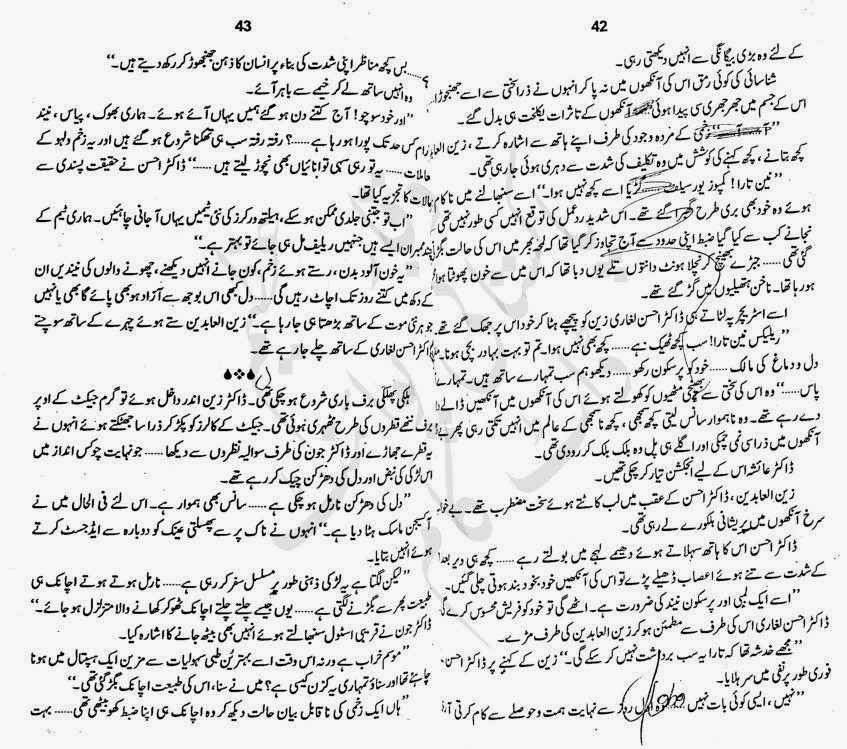 42
کے لئے وہ بڑی بیگانگی سے انہیں دیکھتی رہی۔
شناسائی کی کوئی رمق اس کی آنکھوں میں نہ پا کر انہوں نے ذرا سختی سے اسے جھنجوڑا
اس کے جسم میں جھرجھری سی پیدا ہوئی آنکھوں کے تاثرات یکلخت ہی بدل گئے۔
زخمی کے مردہ وجود کی طرف اپنے ہاتھ سے اشارہ کرتے ، زین العا
کچھ بتانے ، کچھ کہنے کی کوشش میں وہ تکلیف کی شدت سے دہری ہوئی جا رہی تھی۔
”نین تارا! کمپوز یور سیلف گڑیا اسے کچھ نہیں ہوا۔“ اسے سنبھالنے میں ناکام
ہوئے وہ خود بھی بری طرح گھبرا گئے تھے۔ اس شدید ردعمل کی توقع انہیں کسی طور نہیں تھی
نجانے کب سے کیا گیا ضبط اپنی حدود سے آج تجاوز کر گیا تھا کہ لمحہ بھر میں اس کی حالت بگڑ
گئی تھی ...... جبڑے بھینچ کر نچلا ہونٹ دانتوں تلے یوں دبا تھا کہ اس میں سے خون پھوٹتا ہوا
ہو رہا تھا۔ ناخن ہتھیلیوں میں گڑ گئے تھے۔
اسے اسٹریچر پہ لٹاتے ہی ڈاکٹر احسن لغاری زین کو پیچھے ہٹا کر خود اس پر جھک گئے تھے
”ریلیکس نین تارا! سب کچھ ٹھیک ہے ...... کچھ بھی نہیں ہوا۔ تم تو بہت بہادر بچی ہونا۔
دل و دماغ کی مالک ...... خود کو پرسکون رکھو ...... دیکھو ہم سب تمہارے ساتھ ہیں۔ تمہارے
پاس ......“ وہ اس کی سختی سے بھینچی مٹھیوں کو کھولتے ہوئے اس کی آنکھوں میں آنکھیں ڈالے
دے رہے تھے۔ وہ ناہموار سانس لیتی کچھ سمجھی ، کچھ ناسمجھی کے عالم میں انہیں تکتی رہی پھر
آنکھوں میں ذرا سی نمی چمکی اور اگلے ہی پل وہ بلک بلک کر رو دی تھی۔
ڈاکٹر عائشہ اس کے لیے انجکشن تیار کر چکی تھیں۔
زین العابدین ، ڈاکٹر احسن کے عقب میں لب کاٹتے ہوئے سخت مضطرب تھے۔
سرخ آنکھوں میں پریشانی ہلکورے لے رہی تھی۔
ڈاکٹر احسن اس کا ہاتھ سہلاتے ہوئے دھیمے لہجے میں بولتے رہے ...... کچھ ہی دیر بعد
کے شدت سے تنے ہوئے اعصاب ڈھیلے پڑے تو اس کی آنکھیں خود بخود بند ہوتی چلی گئیں۔
”اسے ایک لمبی اور پرسکون نیند کی ضرورت ہے۔ اٹھے گی تو خود کو فریش محسوس کرے گی
ڈاکٹر احسن لغاری اس کی طرف سے مطمئن ہو کر زین العابدین کی طرف مڑے۔
”مجھے خدشہ تھا کہ تارا یہ سب برداشت نہیں کر سکے گی۔“ زین کے کہنے پر ڈاکٹر احسن
فوری طور نفی میں سر ہلایا۔
”نہیں ، ایسی کوئی بات نہیں روز سے نہایت ہمت و حوصلے سے کام کرتی آ
43
بس کچھ مناظر اپنی شدت کی بناء پر انسان کا ذہن جھنجھوڑ کر رکھ دیتے ہیں۔“
وہ انہیں ساتھ لے کر خیمے سے باہر آئے۔
”اور خود سوچو! آج کتنے دن ہو گئے ہمیں یہاں آئے ہوئے۔ ہماری بھوک ، پیاس ، نیند
آرام کس حد تک پورا ہو رہا ہے ......؟ رفتہ رفتہ سب ہی تھکنا شروع ہو گئے ہیں اور یہ زخم دلہو کے
معاملات ...... یہ تو رہی سہی توانائیاں بھی نچوڑ لیتے ہیں ......“ ڈاکٹر احسن نے حقیقت پسندی سے
حالات کا تجزیہ کیا تھا۔
”اب تو جتنی جلدی ممکن ہو سکے ، ہیلتھ ورکرز کی نئی ٹیمیں یہاں آ جانی چاہئیں۔ ہماری ٹیم کے
چند ممبران ایسے ہیں جنہیں ریلیف مل ہی جائے تو بہتر ہے۔“
”یہ خون آلود بدن ، رستے ہوئے زخم ، کون جانے انہیں دیکھنے ، چھونے والوں کی نیندیں ان
کے دکھ میں کتنے روز تک اچاٹ رہیں گی ...... دل بھی اس بوجھ سے آزاد ہو بھی پائے گا بھی یا نہیں
جو ہر نئی موت کے ساتھ بڑھتا ہی جا رہا ہے۔“ زین العابدین ستے ہوئے چہرے کے ساتھ سوچتے
ڈاکٹر احسن لغاری کے ساتھ چلے جا رہے تھے۔
ہلکی پھلکی برف باری شروع ہو چکی تھی۔ ڈاکٹر زین اندر داخل ہوئے تو گرم جیکٹ کے اوپر
برف ننھے قطروں کی طرح ٹھہری ہوئی تھی۔ جیکٹ کے کالرز کو پکڑ کر ذرا سا جھٹکتے ہوئے انہوں نے
یہ قطرے جھاڑے اور ڈاکٹر جون کی طرف سوالیہ نظروں سے دیکھا ...... جو نہایت چوکس انداز میں
اس لڑکی کی نبض اور دل کی دھڑکن چیک کر رہے تھے۔
”دل کی دھڑکن نارمل ہو چکی ہے ...... سانس بھی ہموار ہے۔ اس لئے فی الحال میں نے
آکسیجن ماسک ہٹا دیا ہے۔“ انہوں نے ناک پر سے پھسلتی عینک کو دوبارہ سے ایڈجسٹ کرتے
ہوئے انہیں بتایا۔
”لیکن لگتا ہے یہ لڑکی ذہنی طور پر مسلسل سفر کر رہی ہے ...... نارمل ہوتے ہوتے اچانک ہی
طبیعت پھر سے بگڑنے لگتی ہے ...... یوں جیسے چلتے چلتے اچانک ٹھوکر کھانے والا متزلزل ہو جائے۔“
ڈاکٹر جون نے قریبی اسٹول سنبھالتے ہوئے انہیں بھی بیٹھ جانے کا اشارہ کیا۔
”موسم خراب ہے ورنہ اس وقت اسے بہترین طبی سہولیات سے مزین ایک ہسپتال میں ہونا
چاہئے تھا اور سناؤ تمہاری یہ کزن کیسی ہے؟ میں نے سنا ، اس کی طبیعت اچانک بگڑ گئی تھی۔“
”ہاں ایک زخمی کی ناقابل بیان حالت دیکھ کر وہ اچانک ہی اپنا ضبط کھو بیٹھی تھی ...... بہت